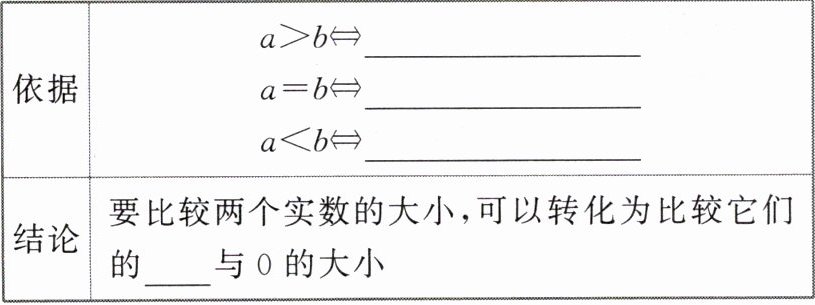 依据
a>b⇔____________
a=b⇔____________
a<b⇔____________
结论
要比较两个实数的大小,可以转化为比较它们
的____与 0 的大小